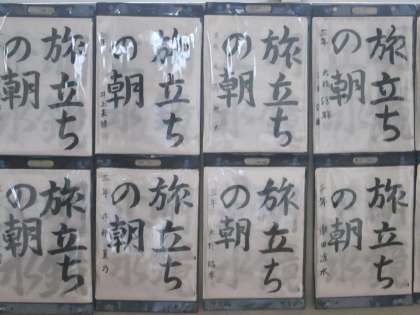 旅立ち
の朝
旅立ち
の朝
旅立ち
の朝
旅立ち
の朝
旅立ち
の朝
旅立ち
の朝
旅立ち
の朝
旅立ち
の朝